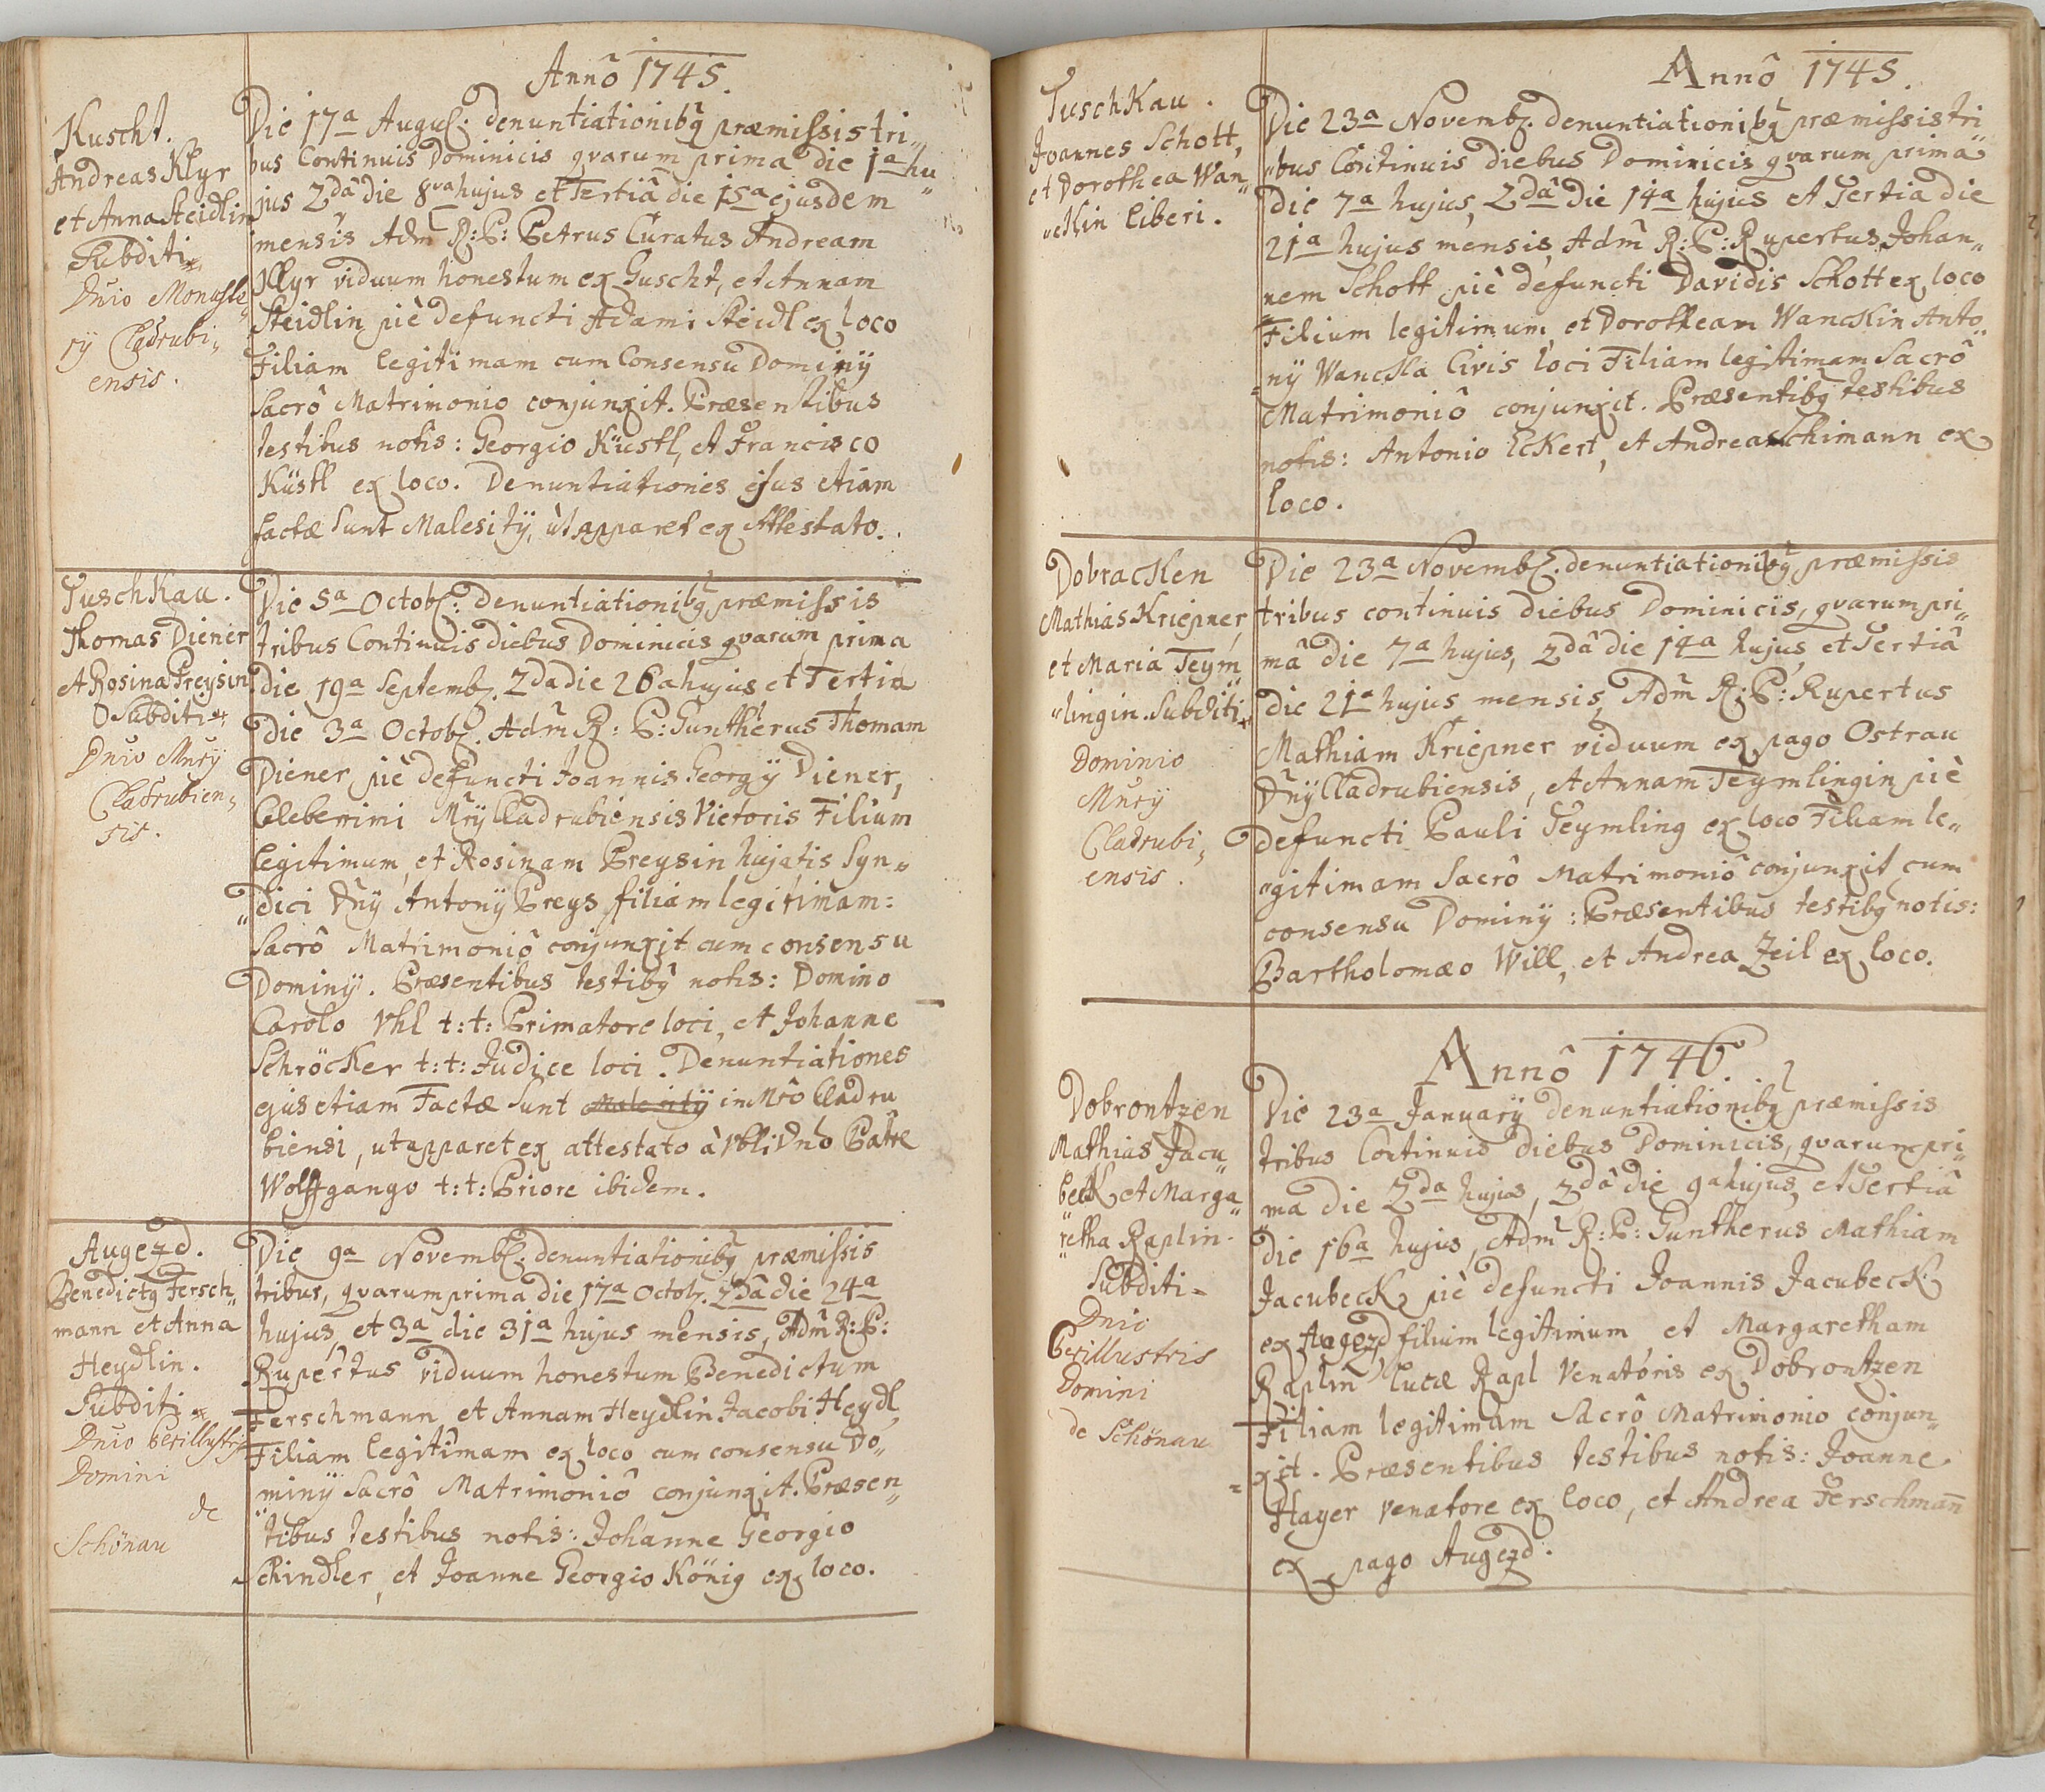 Annô 1745.
Kuscht.
Andreas Klyr
et Anna Steidlin
Subditi
Dnio Monaste„
rÿ Cladrubi„
ensis.
Die 17a Augus: denuntiationibq præmissis tri„
bus Continuis Dominicis qvarum prima die 1a hu„
jus 2dâ die 8va hujus et Tertiâ die 15a ejusdem
mensis Adm R: P: Petrus Curatus Andream
Klyr viduum honestum ex Guscht, et Annam
Steidlin piè defuncti Adami Steidl ex loco
Filiam legitimam cum Consensu Dominÿ
Sacrô Matrimonio conjunxit. Præsentibus
testibus notis: Georgio Küstl, et Francisco
Küstl ex loco. Denuntiationes ejus etiam
factæ sunt Malesitÿ, ùt apparet ex Attestato.
Tuschkau.
Thomas Diener
et Rosina Preysin
Subditi
Dnio Mnrÿ
Cladrubien„
sis.
Die 5a Octob: denuntiationibq præmissis
tribus Continuis diebus Dominicis qvarum prima
die 19a Septemb. 2da die 26a hujus et Tertia
die 3a Octob. Adm R: P: Guntherus Thomam
Diener piè defuncti Joannis Georgÿ Diener,
Celeberrimi Mrÿ Cladrubiensis Vietoris Filium
legitimum, et Rosinam Preysin hujatis Syn„
„dici Dnÿ Antonÿ Preys filiam legitimam:
Sacrô Matrimoniô conjunxit cum consensu
Dominÿ. Præsentibus testibq notis: Domino
Carolo Vhl t:t: Primatore loci, et Johanne
Schröcker t:t: Judice loci. Denuntiationes
ejus etiam Factæ sunt Malesitÿ in Mrô Cladru
biensi, ut apparet ex attestato à Vbli Dnô Patre
Wolffgango t:t: Priore ibidem.
Augezd.
Benedictq Fersch„
mann et Anna
Heydlin.
Subditi
Dnio Perillustris
Domini
de
Schönau
Die 9a Novemb: denuntiationibq præmissis
tribus, qvarum prima die 17a Octobr. 2dâ die 24a
hujus, et 3a die 31a hujus mensis, Adm R: P:
Rupertus viduum honestum Benedictum
Ferschmann, et Annam Heydlin Jacobi Heydl
Filiam legitimam ex loco cum consensu Do„
„minÿ Sacrô Matrimoniô conjunxit. Præsen„
tibus testibus notis: Johanne Georgio
Schindler, et Joanne Georgio König ex loco.
Annô 1745.
Tuschkau.
Joannes Schott,
et Dorothea Wan„
„cklin liberi.
Die 23a Novemb. denuntiationibq præmissis tri„
„bus Continuis diebus Dominicis qvarum prima
die 7a hujus, 2dâ die 14a hujus et Tertia die
21a hujus mensis, Adm R: P: Rupertus Johan„
nem Schott piè defuncti Davidis Schott ex loco
Filium legitimum, et Dorotheam Wancklin Anto„
nÿ Wanckla Civis loci Filiam legitimam Sacrô
Matrimoniô conjunxit. Præsentibq testibus
notis: Antonio Eckert, et Andrea Schimann ex
loco.
Dobracken
Mathias Kriepner,
et Maria Teym„
„lingin. Subditi
Dominio
Mnrÿ
Cladrubi„
ensis.
Die 23a Novemb: denuntiationibq præmissis
tribus continuis diebus Dominicis, qvarum pri„
mâ die 7a hujus, 2dâ die 14a hujus, et Tertiâ
die 21a hujus mensis, Adm R: P: Rupertus
Mathiam Kriepner viduum ex pago Ostrau
Dnÿ Cladrubiensis, et Annam Teymlingin piè
defuncti Pauli Teymling ex loco Filiam le„
„gitimam Sacrô Matrimoniô conjunxit cum
consensu Dominÿ: Præsentibus testibq notis:
Bartholomæo Will, et Andrea Zeil ex loco.
Annô 1746.
Dobrontzen
Mathias Jacu„
beck et Marga„
„retha Raplin.
Subditi
Dnio
Perillustris
Domini
de Schönau
Die 23a Januarÿ denuntiationibq præmissis
tribus Continuis diebus Dominicis, qvarum pri„
ma die 2da hujus, 2dâ die 9a hujus, et Tertiâ
die 16a hujus, Adm R: P: Guntherus Mathiam
Jacubeck piè defuncti Joannis Jacubeck
ex Augezd filium legitimum et Margaretham
Raplin Lucæ Rapl Venatoris ex Dobrontzen
Filiam legitimam Sacrô Matrimonio conjun„
xit. Præsentibus testibus notis: Joanne
Hayer venatore ex loco, et Andrea Ferschmañ
ex pago Augezd.